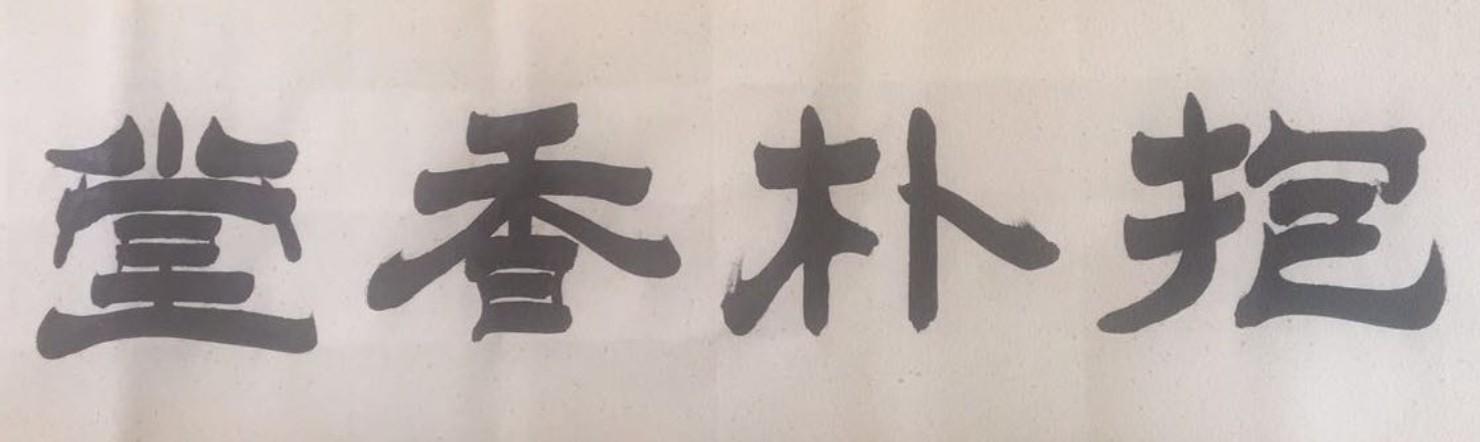 抱朴香堂